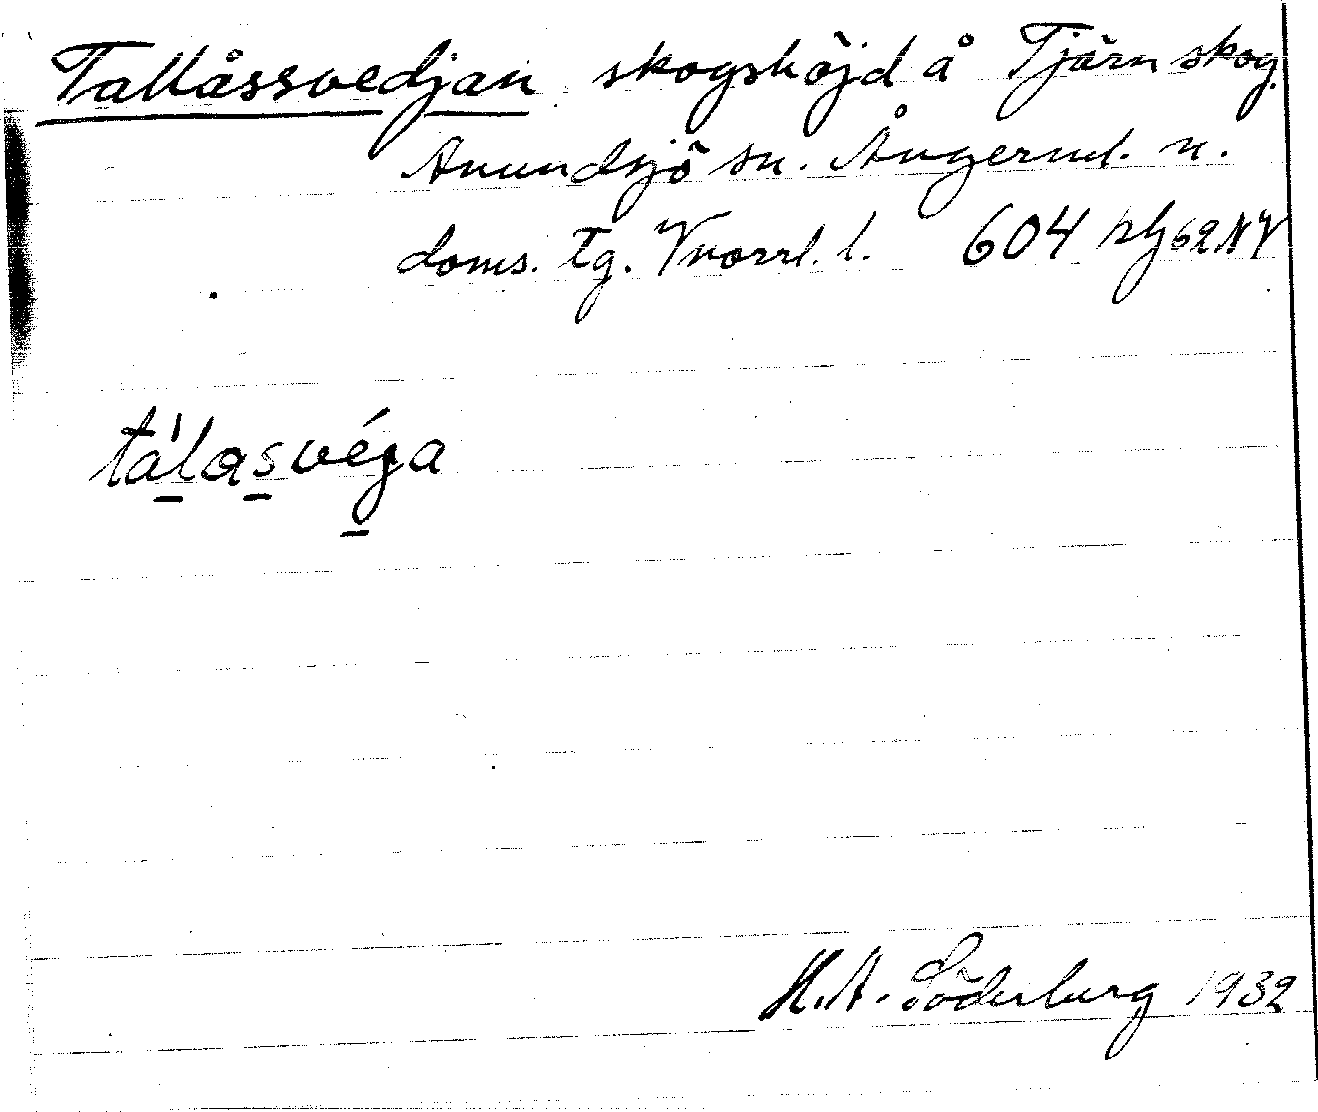 Tallåssvedjan skogshöjd å Tjärn skog.
Anundsjö sn. Ångerml. n.
doms. tg. Vnorrl. l. 604 62 NV
tálasvéga
H. A. Söderberg 1932